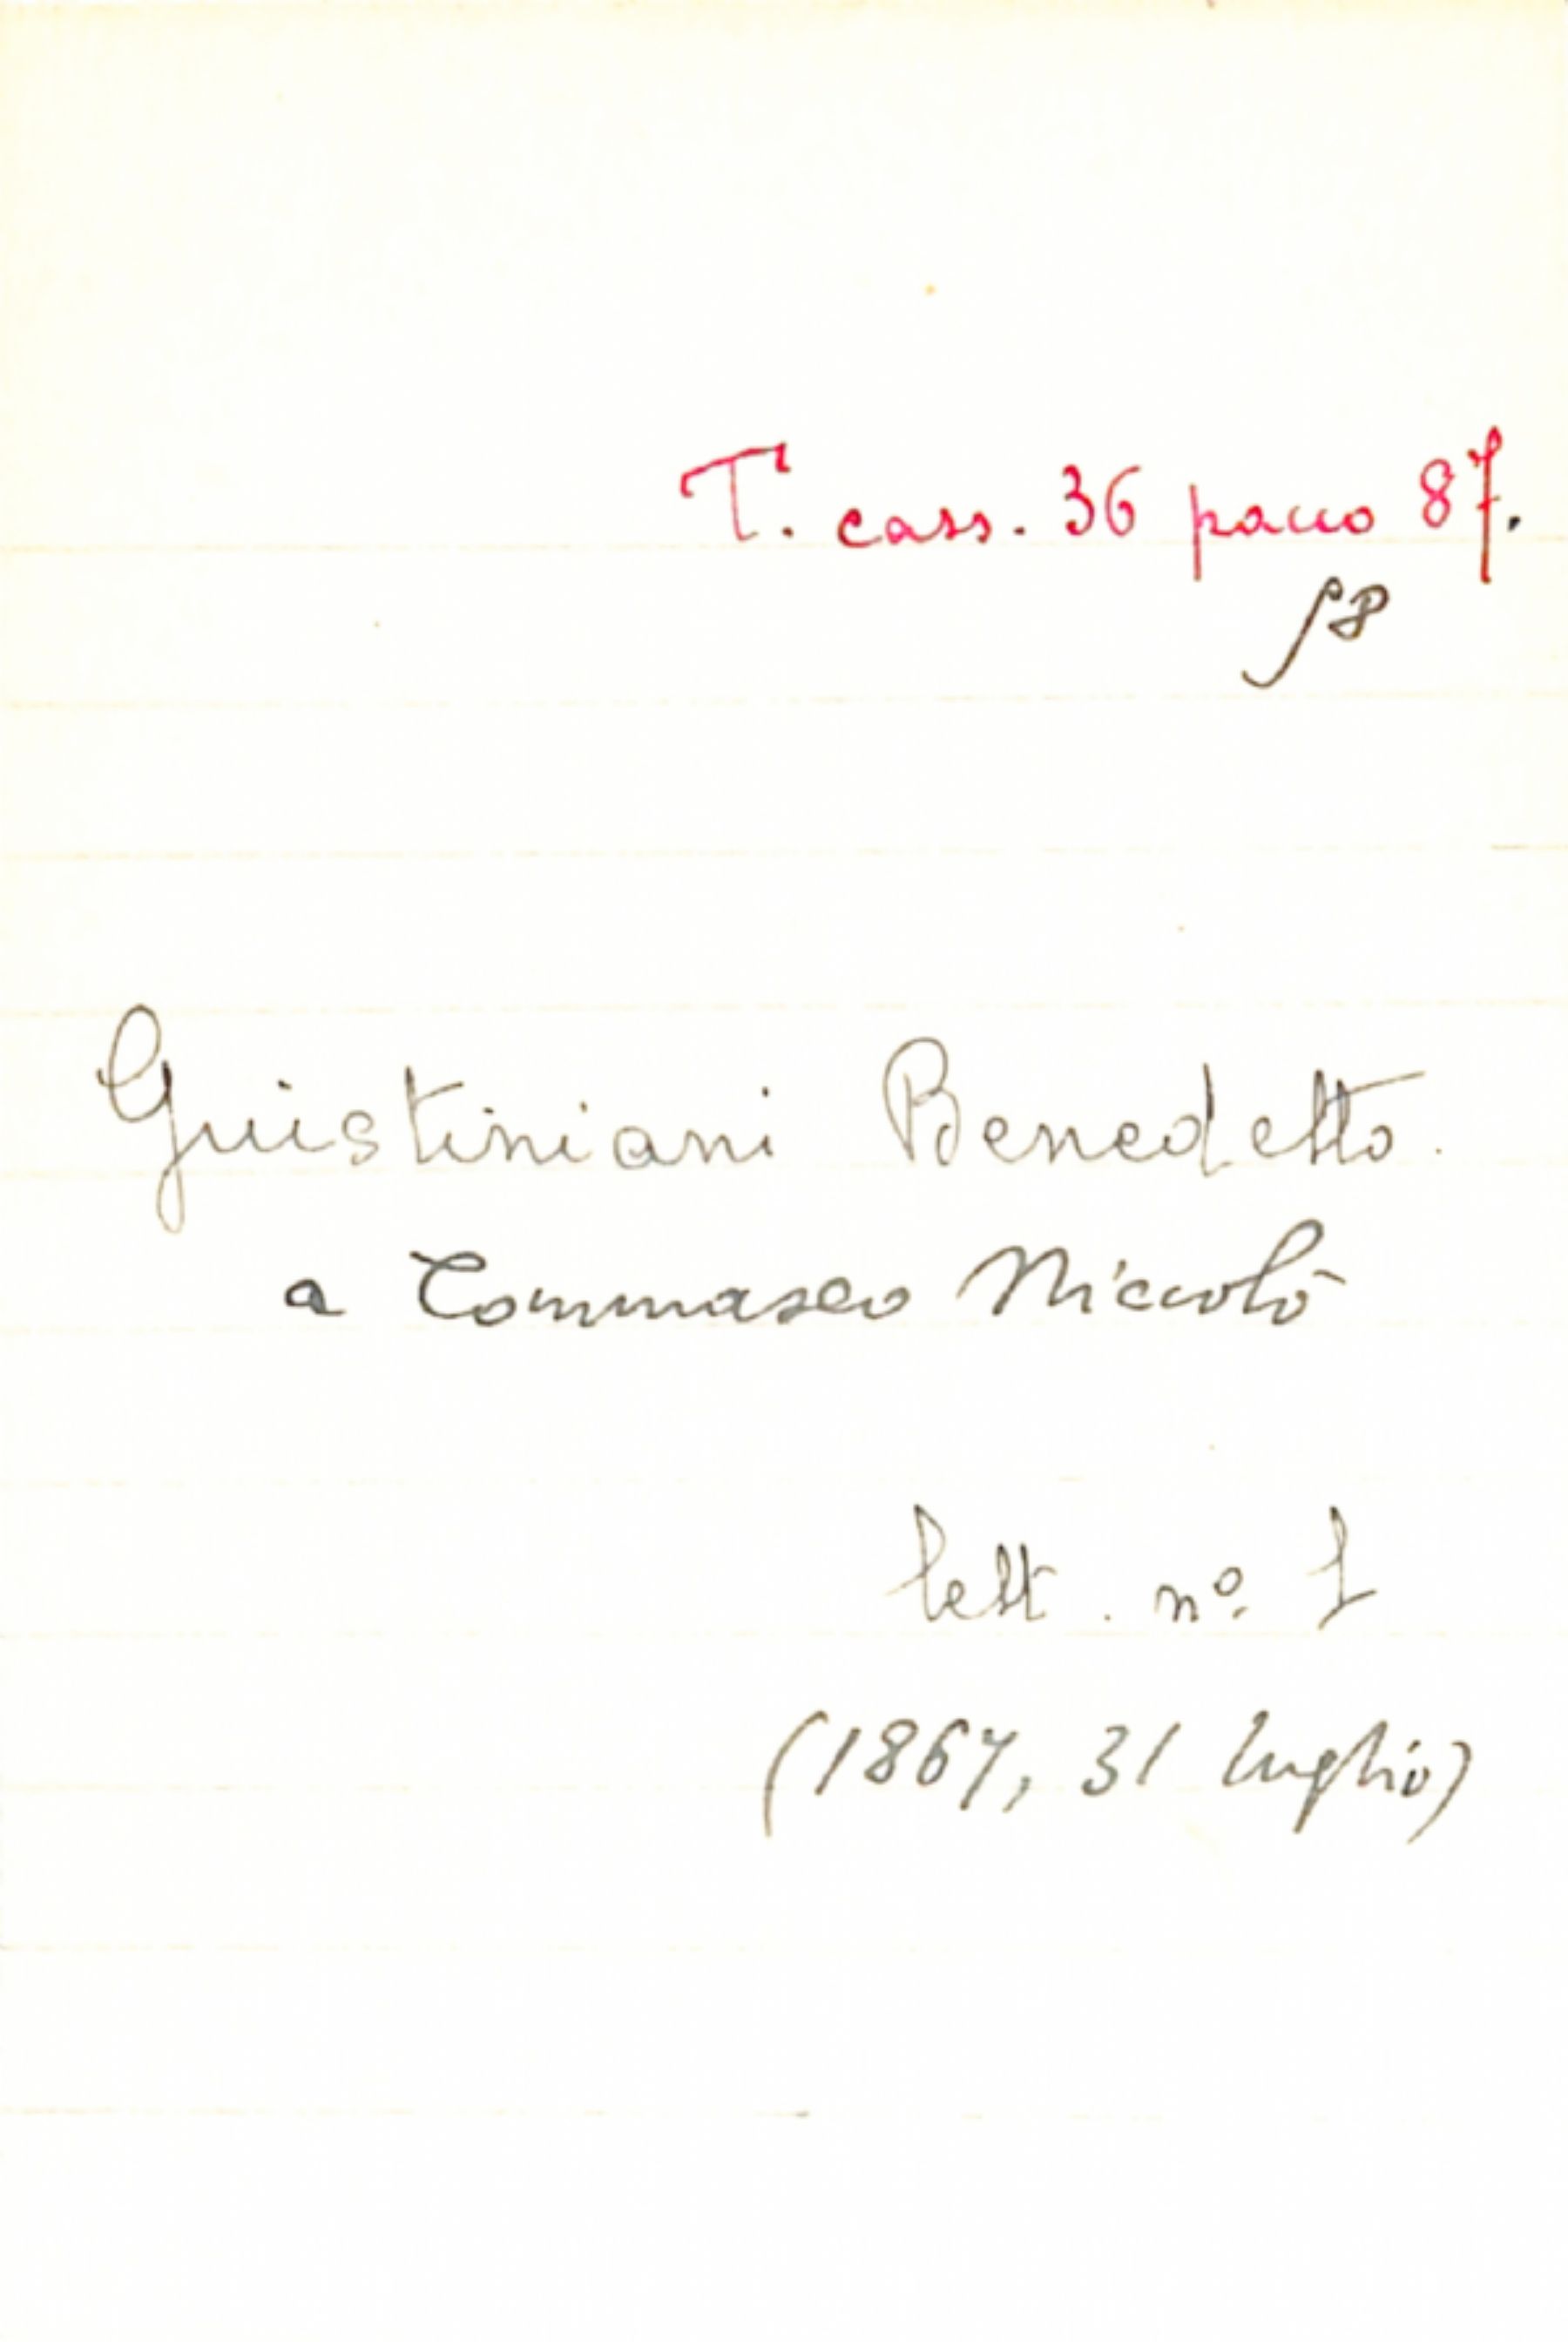 T. cass. 36 pacco 87.
Giustiniani Benedetto.
a Tommaseo Niccolò
lett. nº. 1
(1867, 31 luglio)